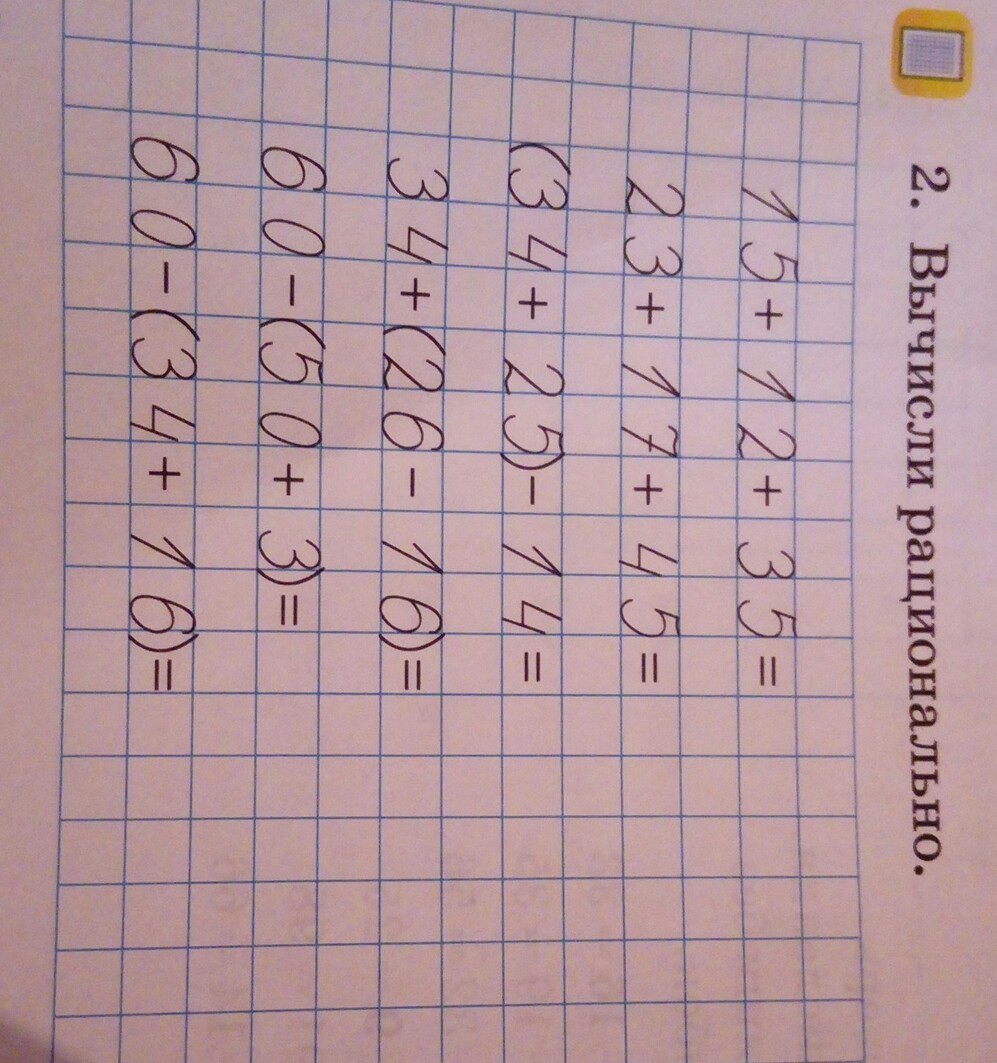 2. Вычисли рационально.
15+12+35=
23+17+45=
(34+25)-14=
34+(26-16)=
60-(50+3)=
60-(34+16)=